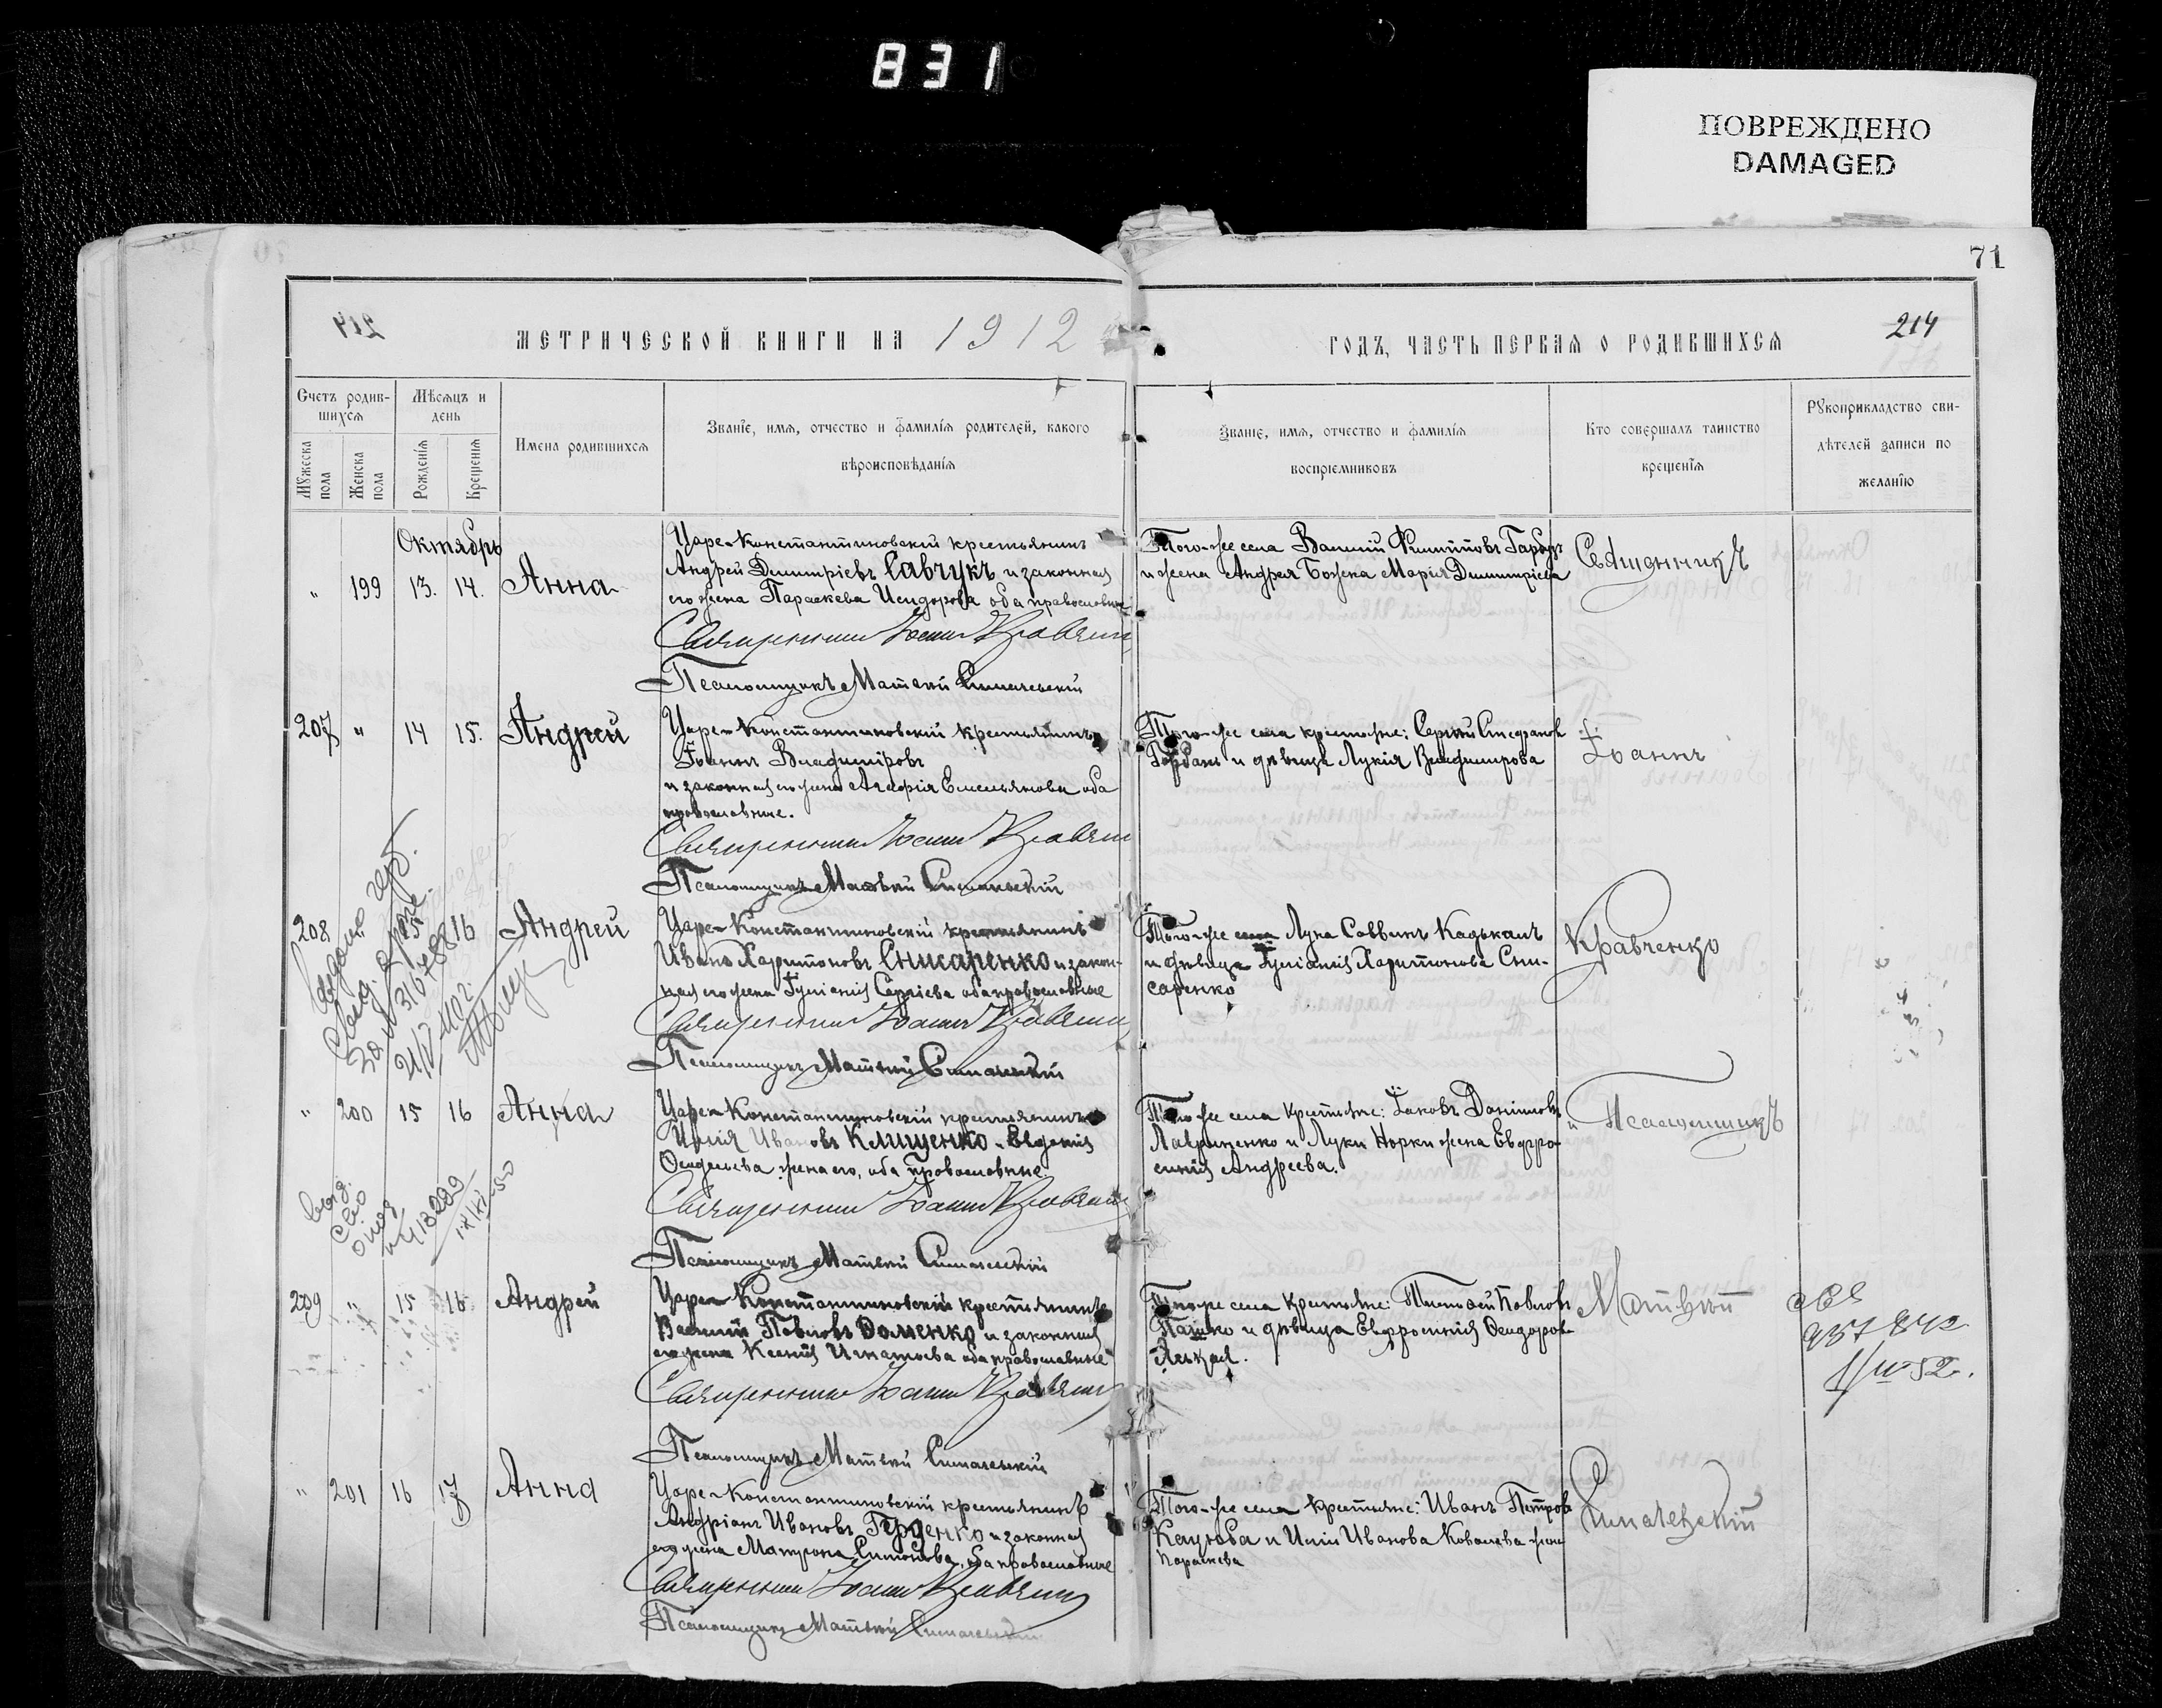 831
ПОВРЕЖДЕНО
DAMAGED
71
МЕТРИЧЕСКОЙ КНИГИ НА 1912
ГОДЪ, ЧАСТЬ ПЕРВАЯ О РОДИВШИХСЯ
214
Счетъ родив-
шихся
Мѣсяцъ и
день
Мужеска
пола
Женска
пола
Рожденія
Крещенія
Имена родившихся
Званіе, имя, отчество и фамилія родителей, какого
вѣроисповѣданія
Званіе, имя, отчество и фамилія
воспріемниковъ
Кто совершалъ таинство
крещенія
Рукоприкладство сви-
дѣтелей записи по
желанію
Октябрь
" 199 13. 14. Анна
Царе-Константиновскій крестьянинъ
Андрей Димитріевъ Савчукъ и законная
его жена Параскева Исидорова оба православные
Священникъ Іоаннъ Кравченко
Псаломщикъ Матвѣй Сималевскій
Того-же села Василій Филипповъ Гарбузъ
и жена Андрея Божка Марія Димитріева
Священникъ
207 " 14 15. Андрей
Царе-Константиновскій крестьянинъ
Іоаннъ Владиміровъ
и законная его жена Агафія Емельянова оба
православные.
Священникъ Іоаннъ Кравченко
Псаломщикъ Матвѣй Сималевскій
Того-же села крестьяне: Сергій Стефановъ
и дѣвица Лукія Владимірова
Іоаннъ
208 15 16 Андрей
Царе-Константиновскій крестьянинъ
Иванъ Харитоновъ Снисаренко и закон-
ная его жена Іуліанія Сергіева оба православные
Священникъ Іоаннъ Кравченко
Псаломщикъ Матвѣй Сималевскій
Того-же села Лука Саввинъ
и дѣвица Іуліанія Харитонова Сни-
саренко
Кравченко
" 200 15 16 Анна
Царе-Константиновскій крестьянинъ
Илія Ивановъ Клищенко и Евдокія
жена его, оба православные.
Священникъ Іоаннъ Кравченко
Псаломщикъ Матвѣй Сималевскій
Того же села крестьяне: Іаковъ Даніиловъ
Лавриненко и Луки Норки жена Евфро-
синія Андреева.
и Псаломщикъ
209 " 15 16 Андрей
Царе-Константиновскій крестьянинъ
Василій Павловъ Доменко и законная
его жена Ксенія Игнатьева оба православные
Священникъ Іоаннъ Кравченко
Псаломщикъ Матвѣй Сималевскій
Того же села крестьяне: Павловъ
Пашко и дѣвица Евфросинія
Матвѣй
" 201 16 17 Анна
Царе-Константиновскій крестьянинъ
Андріанъ Ивановъ и законная
его жена Матрона Симонова, оба православные
Священникъ Іоаннъ Кравченко
Псаломщикъ Матвѣй Сималевскій
Того-же села крестьяне: Иванъ Петровъ
и Иліи Иванова Ковалева жена
Параскева
Сималевскій